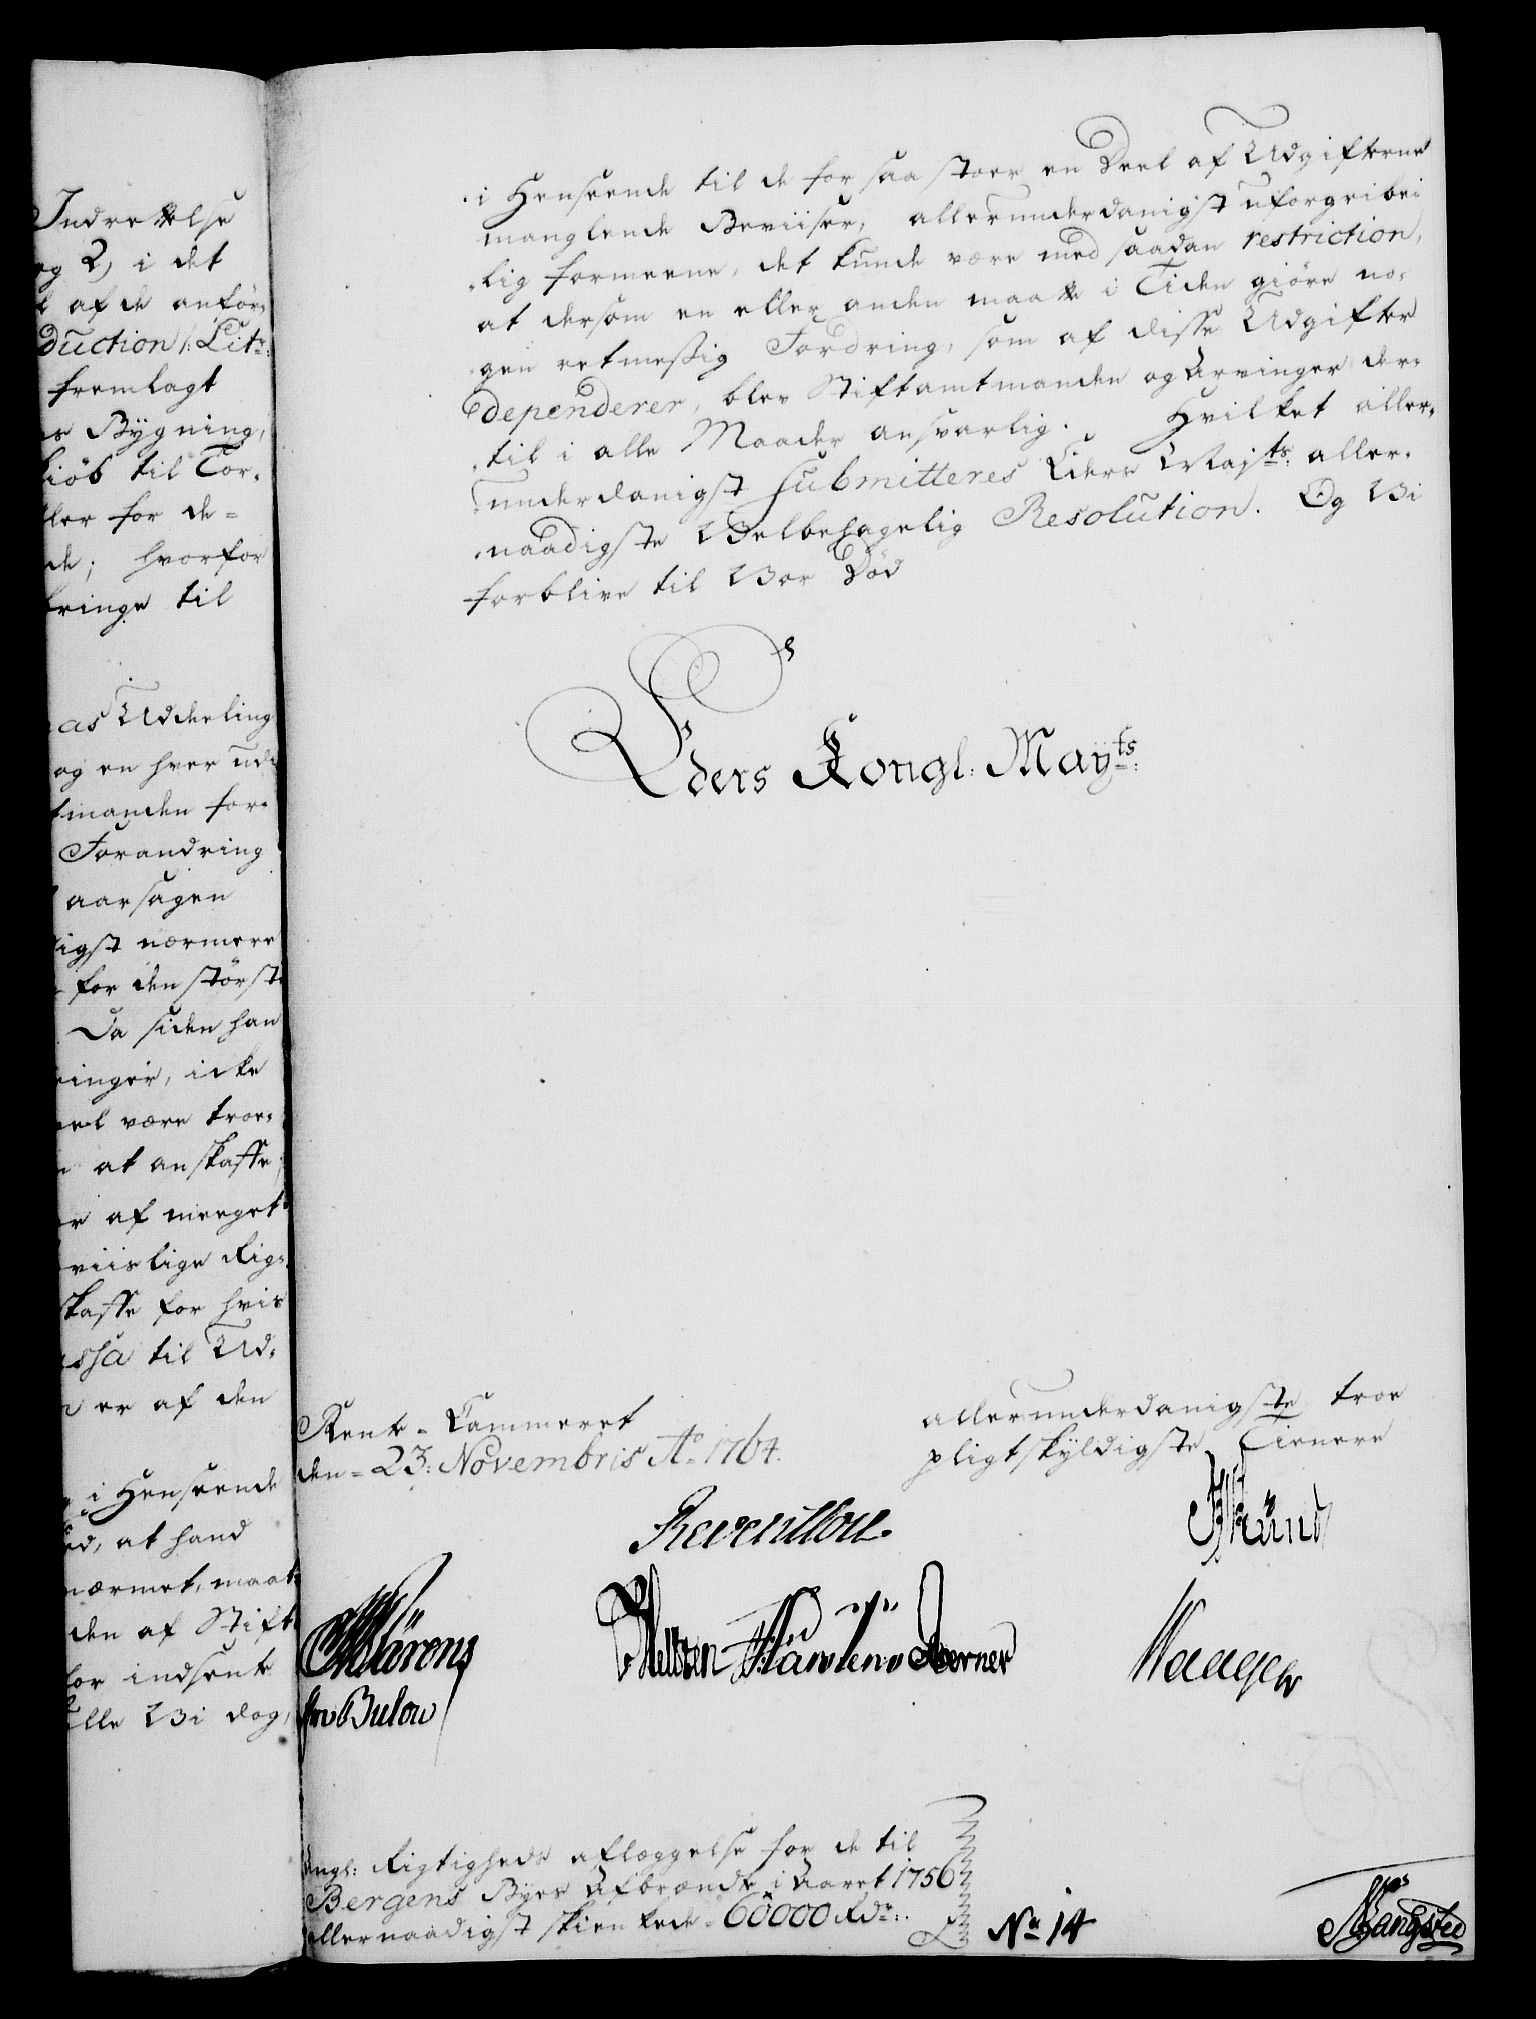 Indrettelse
og 2) i det
af de anför-
duction /: Litr:
fremlagt
Bÿgning,
kiöb til Tor-
ler for de=
de; hvorfor
bringe til
as Uddeeling
og en hver ud-
tmanden for-
Forandring
aarsagen
igst nærmere
for den störste
Da siden han
vinger, icke
vel være troe-
at anskaffe,
er af meeget
viislige Rig-
skaffe for hvis
assa til Ud-
er af den
i Henseende
ed, at hand
nærmet, maat
den af Stift
for indsendt
ille Vi dog,
i Henseende til de for saa stoer en Deel af Udgifterne
manglende Beviiser, allerunderdanigst uforgribe-
lig formeene, det kunde være med saadan restriction,
at dersom en eller anden maatte i Tiden giöre no-
gen retmeßig Fordring, som af disse Udgifter
dependerer, blev Stiftamtmanden og Arvinger der-
til i alle Maader ansvarlig. Hvilket aller-
underdanigst submitteres Eders Mayts: aller-
naadigste Velbehagelig Resolution. Og Vi
forblive til Vor Död
Eders Kongl: Mayts:
Rente-Cammeret
den= 23: Novembris Ao 1764.
allerunderdanigste troe
pligtskÿldigste Tienere
Reventlou
Klärens
Bulow
Hellesen
Berner
Waager
angl: Rigtigheds aflæggelse for de til
Bergens Byes Afbrændte i Aaret 1756
allernaadigst skienkede= 60000 Rdr:
No 14
Bangsted